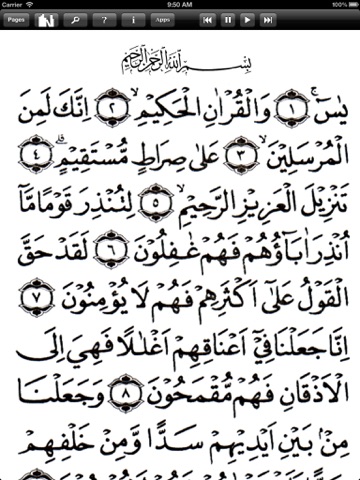 Carrier 9:50 AM 100%
Pages ? i Apps
بِسْمِ اللّٰهِ الرَّحْمٰنِ الرَّحِيْمِ
يٰسٓ ۚ ﴿١﴾ وَالْقُرْاٰنِ الْحَكِيْمِ ۙ ﴿٢﴾ اِنَّكَ لَمِنَ
الْمُرْسَلِيْنَ ۙ ﴿٣﴾ عَلٰى صِرَاطٍ مُّسْتَقِيْمٍ ؕ ﴿٤﴾
تَنْزِيْلَ الْعَزِيْزِ الرَّحِيْمِ ۙ ﴿٥﴾ لِتُنْذِرَ قَوْمًا مَّاۤ
اُنْذِرَ اٰبَآؤُهُمْ فَهُمْ غٰفِلُوْنَ ﴿٦﴾ لَقَدْ حَقَّ
الْقَوْلُ عَلٰٓى اَكْثَرِهِمْ فَهُمْ لَا يُؤْمِنُوْنَ ﴿٧﴾
اِنَّا جَعَلْنَا فِيْٓ اَعْنَاقِهِمْ اَغْلٰلًا فَهِيَ اِلَى
الْاَذْقَانِ فَهُمْ مُّقْمَحُوْنَ ﴿٨﴾ وَجَعَلْنَا
مِنْۢ بَيْنِ اَيْدِيْهِمْ سَدًّا وَّمِنْ خَلْفِهِمْ